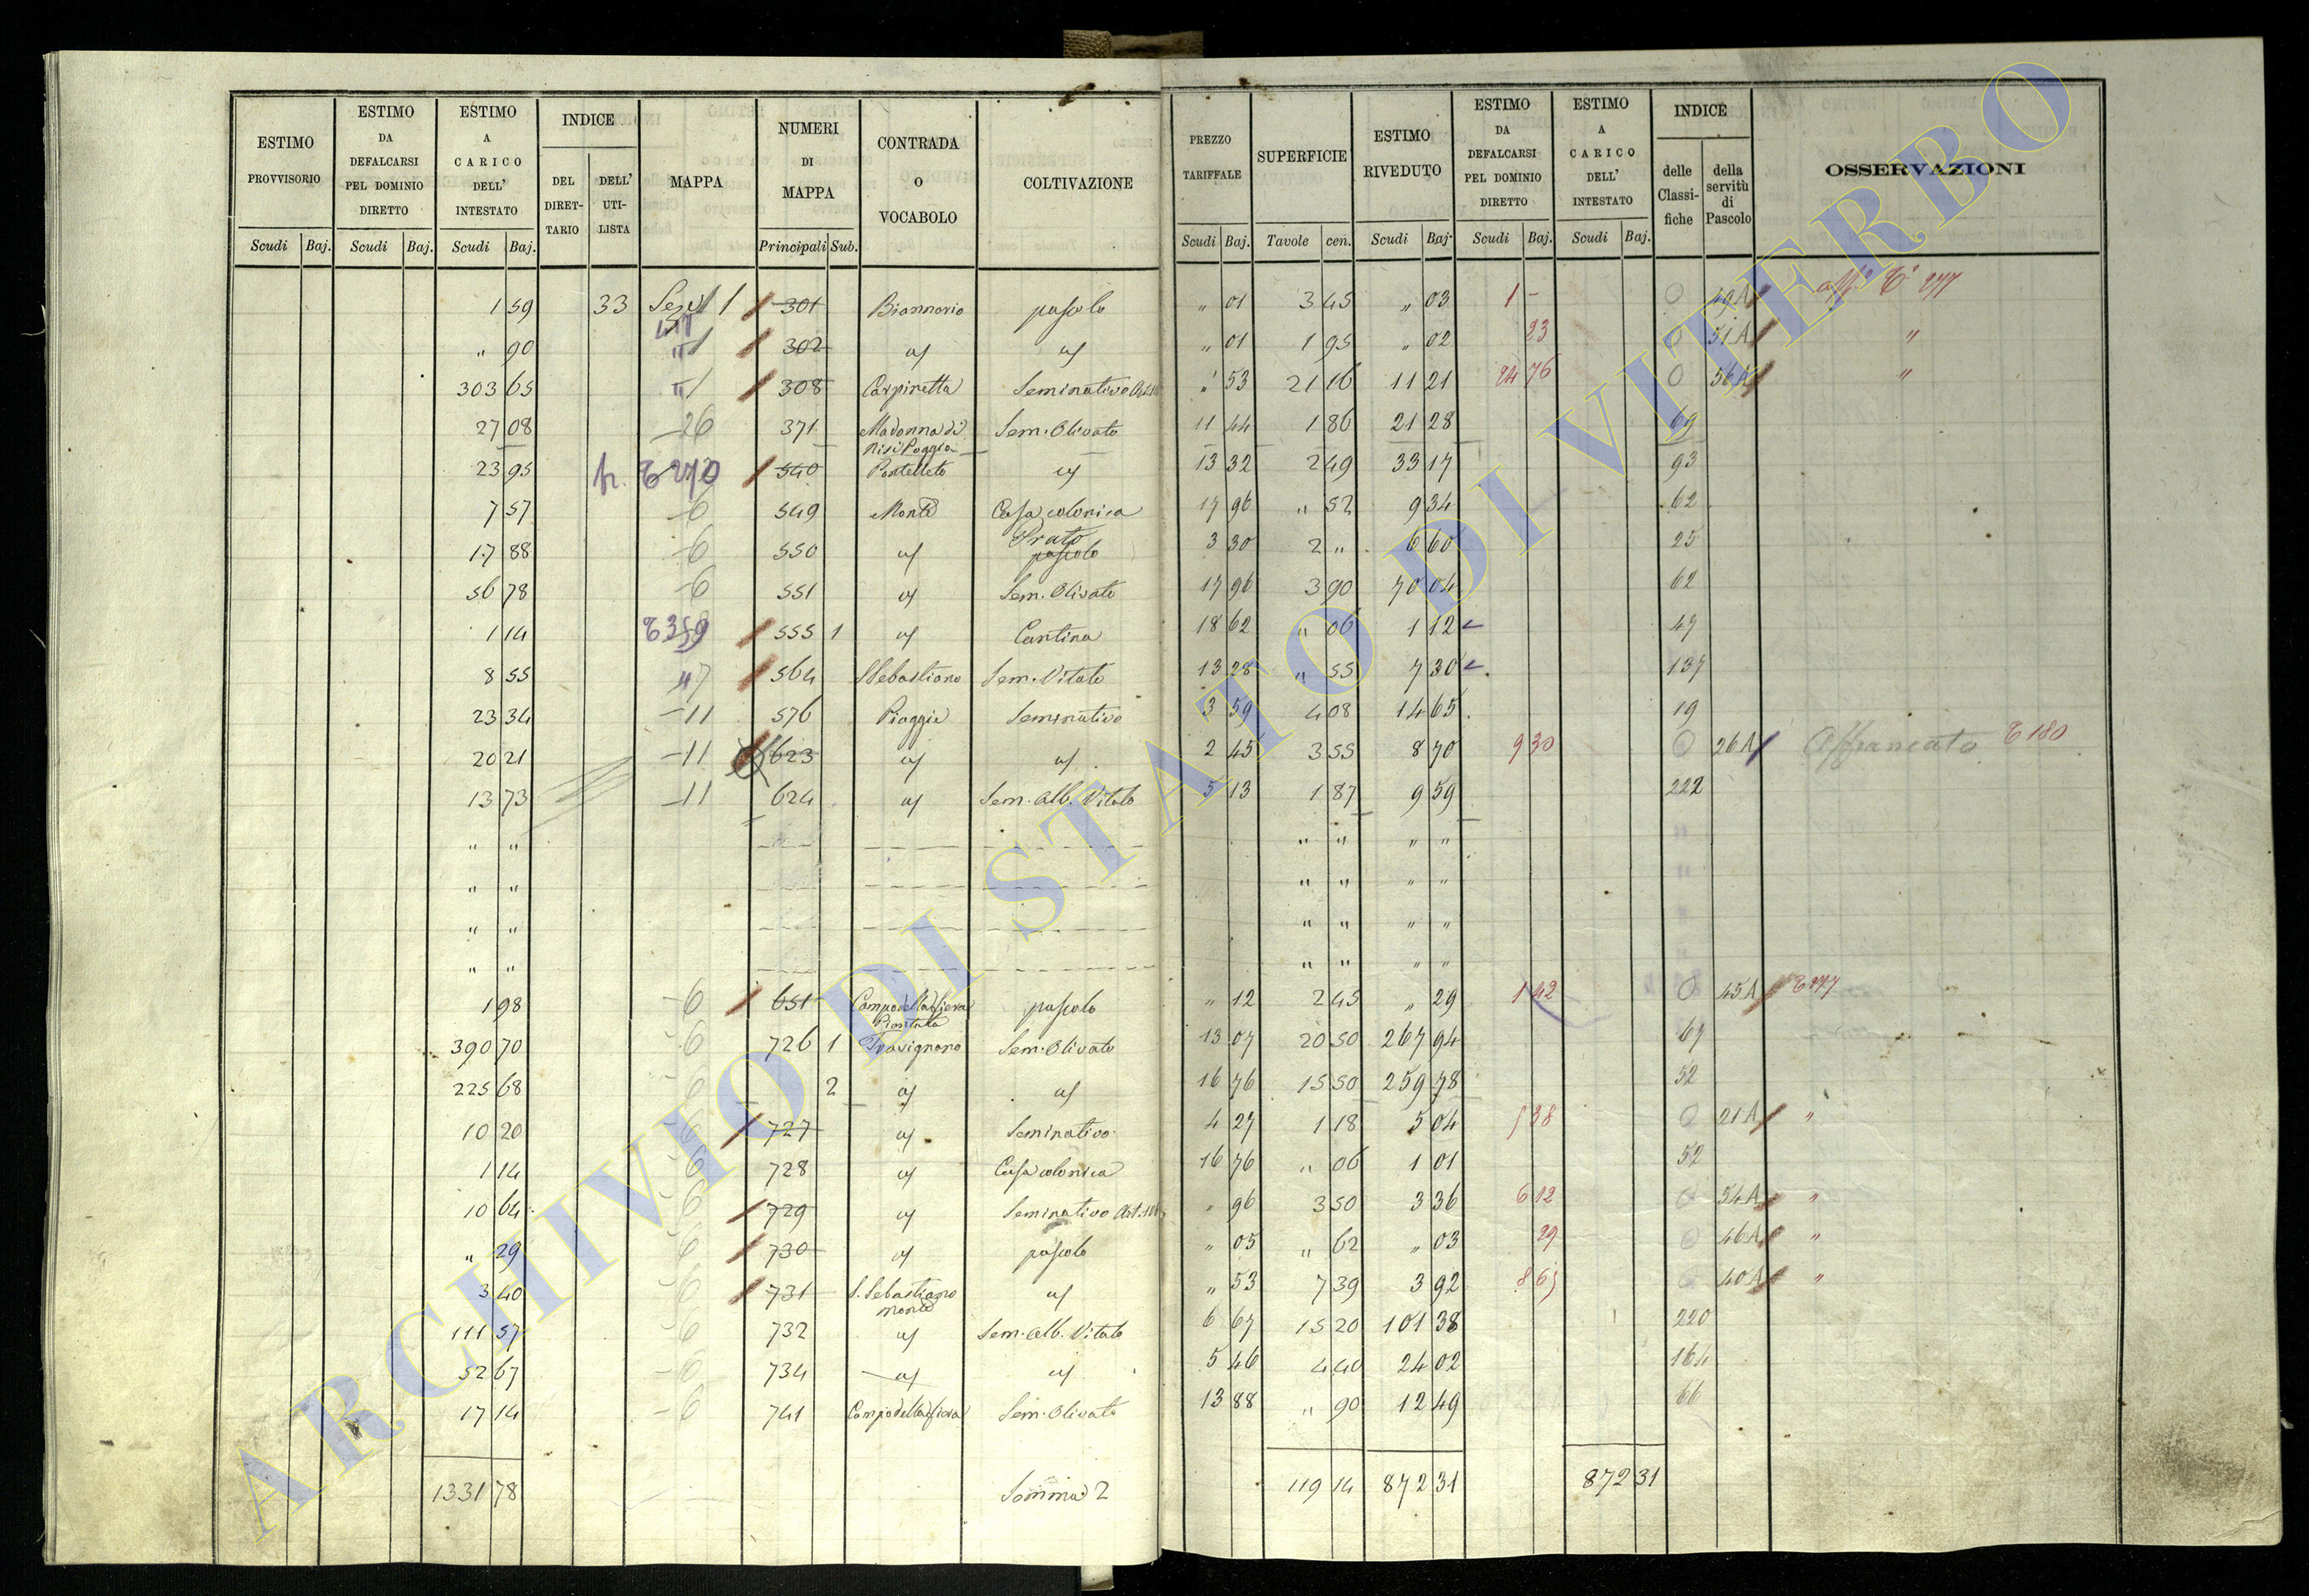 ESTIMO PROVVISORIO | ESTIMO DA DEFALCARSI PEL DOMINIO DIRETTO | ESTIMO A CARICO DELL' INTESTATO | INDICE DEL DIRET-TARIO | DELL' UTI-LISTA | MAPPA | NUMERI DI MAPPA | CONTRADA O VOCABOLO | COLTIVAZIONE | PREZZO TARIFFALE | SUPERFICIE | ESTIMO RIVEDUTO | ESTIMO DA DEFALCARSI PEL DOMINIO DIRETTO | ESTIMO A CARICO DELL' INTESTATO | INDICE delle Classi-fiche | della servitù di Pascolo | OSSERVAZIONI
Scudi Baj. | Scudi Baj. | Scudi Baj. | Principali Sub. | Scudi Baj. | Tavole cen. | Scudi Baj. | Scudi Baj. | Scudi Baj.
1 59 | 33 | 1 | 301 | pascolo | " 01 | 3 45 | " 03 | 1 - | 0 | 49A | 277
" 90 | 1 | 302 | " 01 | 1 95 | " 02 | 23 | 0 | 51A | "
303 65 | 1 | 308 | Carpinetta | Seminativo | " 53 | 21 16 | 11 21 | 24 76 | 0 | 56A | "
27 08 | 26 | 371 | Madonna di | Sem. Olivato | 11 44 | 1 86 | 21 28 | 69
23 95 | 270 | 540 | 13 32 | 2 49 | 33 17 | 93
7 57 | 6 | 549 | Monte | Casa colonica | 17 96 | " 52 | 9 34 | 62
17 88 | 6 | 550 | Prato pascolo | 3 30 | 2 " | 6 60 | 25
56 78 | 6 | 551 | Sem. Olivato | 17 96 | 3 90 | 70 04 | 62
1 14 | 359 | 555 1 | Cantina | 18 62 | " 06 | 1 12 | 47
8 55 | 7 | 564 | S Sebastiano | Sem. Vitato | 13 28 | " 55 | 7 30 | 137
23 34 | 11 | 576 | Piaggie | Seminativo | 3 59 | 4 08 | 14 65 | 19
20 21 | 11 | 623 | 2 45 | 3 55 | 8 70 | 9 30 | 0 | 26A | Affrancato 180
13 73 | 11 | 624 | Sem. Alb. Vitato | 5 13 | 1 87 | 9 59 | 222
" " | " " | " "
" " | " " | " "
" " | " " | " "
" " | " " | " "
1 98 | 6 | 651 | Campo della fiera | pascolo | " 12 | 2 45 | " 29 | 1 42 | 0 | 45A | 277
390 70 | 6 | 726 1 | Travignano | Sem. Olivato | 13 07 | 20 50 | 267 94 | 67
225 68 | 6 | 2 | 16 76 | 15 50 | 259 78 | 52
10 20 | 6 | 727 | Seminativo | 4 27 | 1 18 | 5 04 | 5 38 | 0 | 21A | "
1 14 | 6 | 728 | Casa colonica | 16 76 | " 06 | 1 01 | 52
10 64 | 6 | 729 | Seminativo | " 96 | 3 50 | 3 36 | 6 12 | 0 | 54A | "
" 29 | 6 | 730 | pascolo | " 05 | " 62 | " 03 | 29 | 0 | 46A | "
3 40 | 6 | 731 | S. Sebastiano | " 53 | 7 39 | 3 92 | 40A | "
111 57 | 6 | 732 | Sem. Alb. Vitato | 6 67 | 15 20 | 101 38 | 220
52 67 | 6 | 734 | 5 46 | 4 40 | 24 02 | 164
17 14 | 6 | 741 | Campo della fiera | Sem. Olivato | 13 88 | " 90 | 12 49 | 66
1331 78 | Somma 2 | 119 14 | 872 31 | 872 31
ARCHIVIO DI STATO DI VITERBO